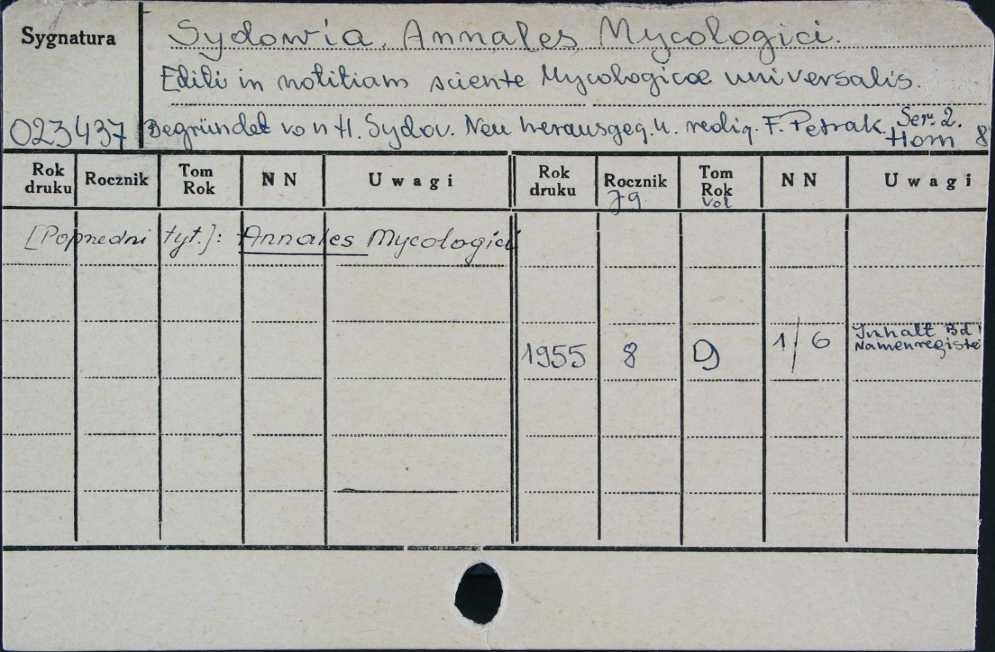 Sygnatura
Sydowia, Annales Mycologici.
Editi in notitiam sciente Mycologicae universalis.
023437 Begründet von H. Sydov. Neu herausgeg. u. redig. F. Petrak. Ser. 2.
Horn 8
Rok druku Rocznik Tom Rok N N Uwagi Rok druku Rocznik Jg. Tom Rok Vol N N Uwagi
[Poprzedni tyt.]: Annales Mycologici
1955 8 9 1/6 Inhalt Bd
Namenregister